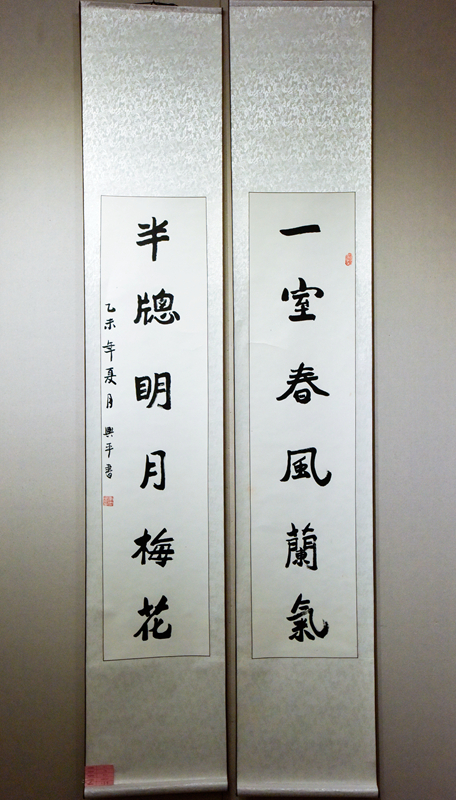 一室春風蘭氣
半牕明月梅花
乙未年夏月興平書